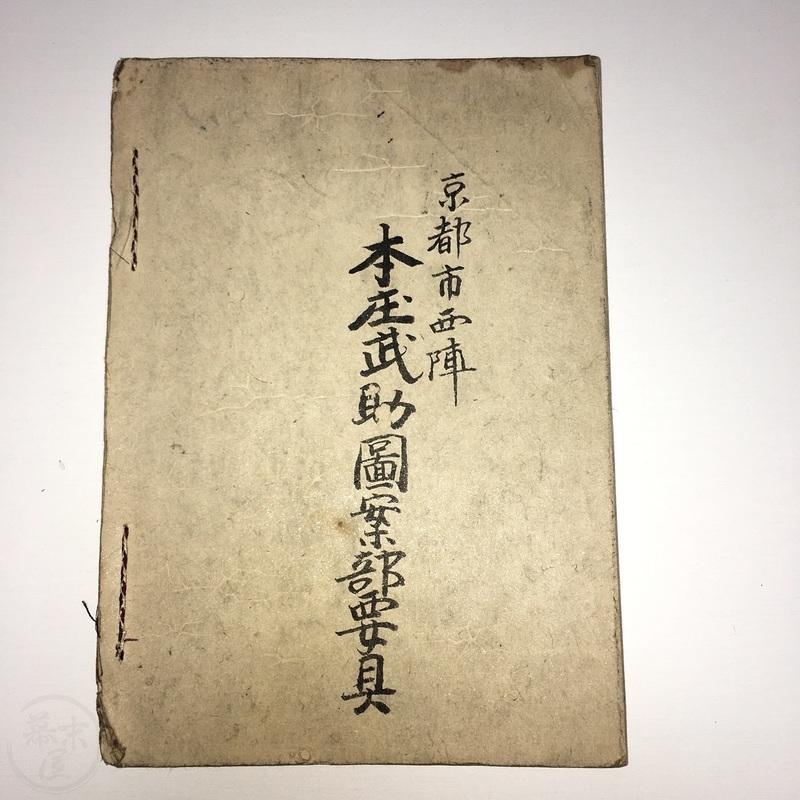 京都市西陣
本庄武助圖案部要具
幕末屋